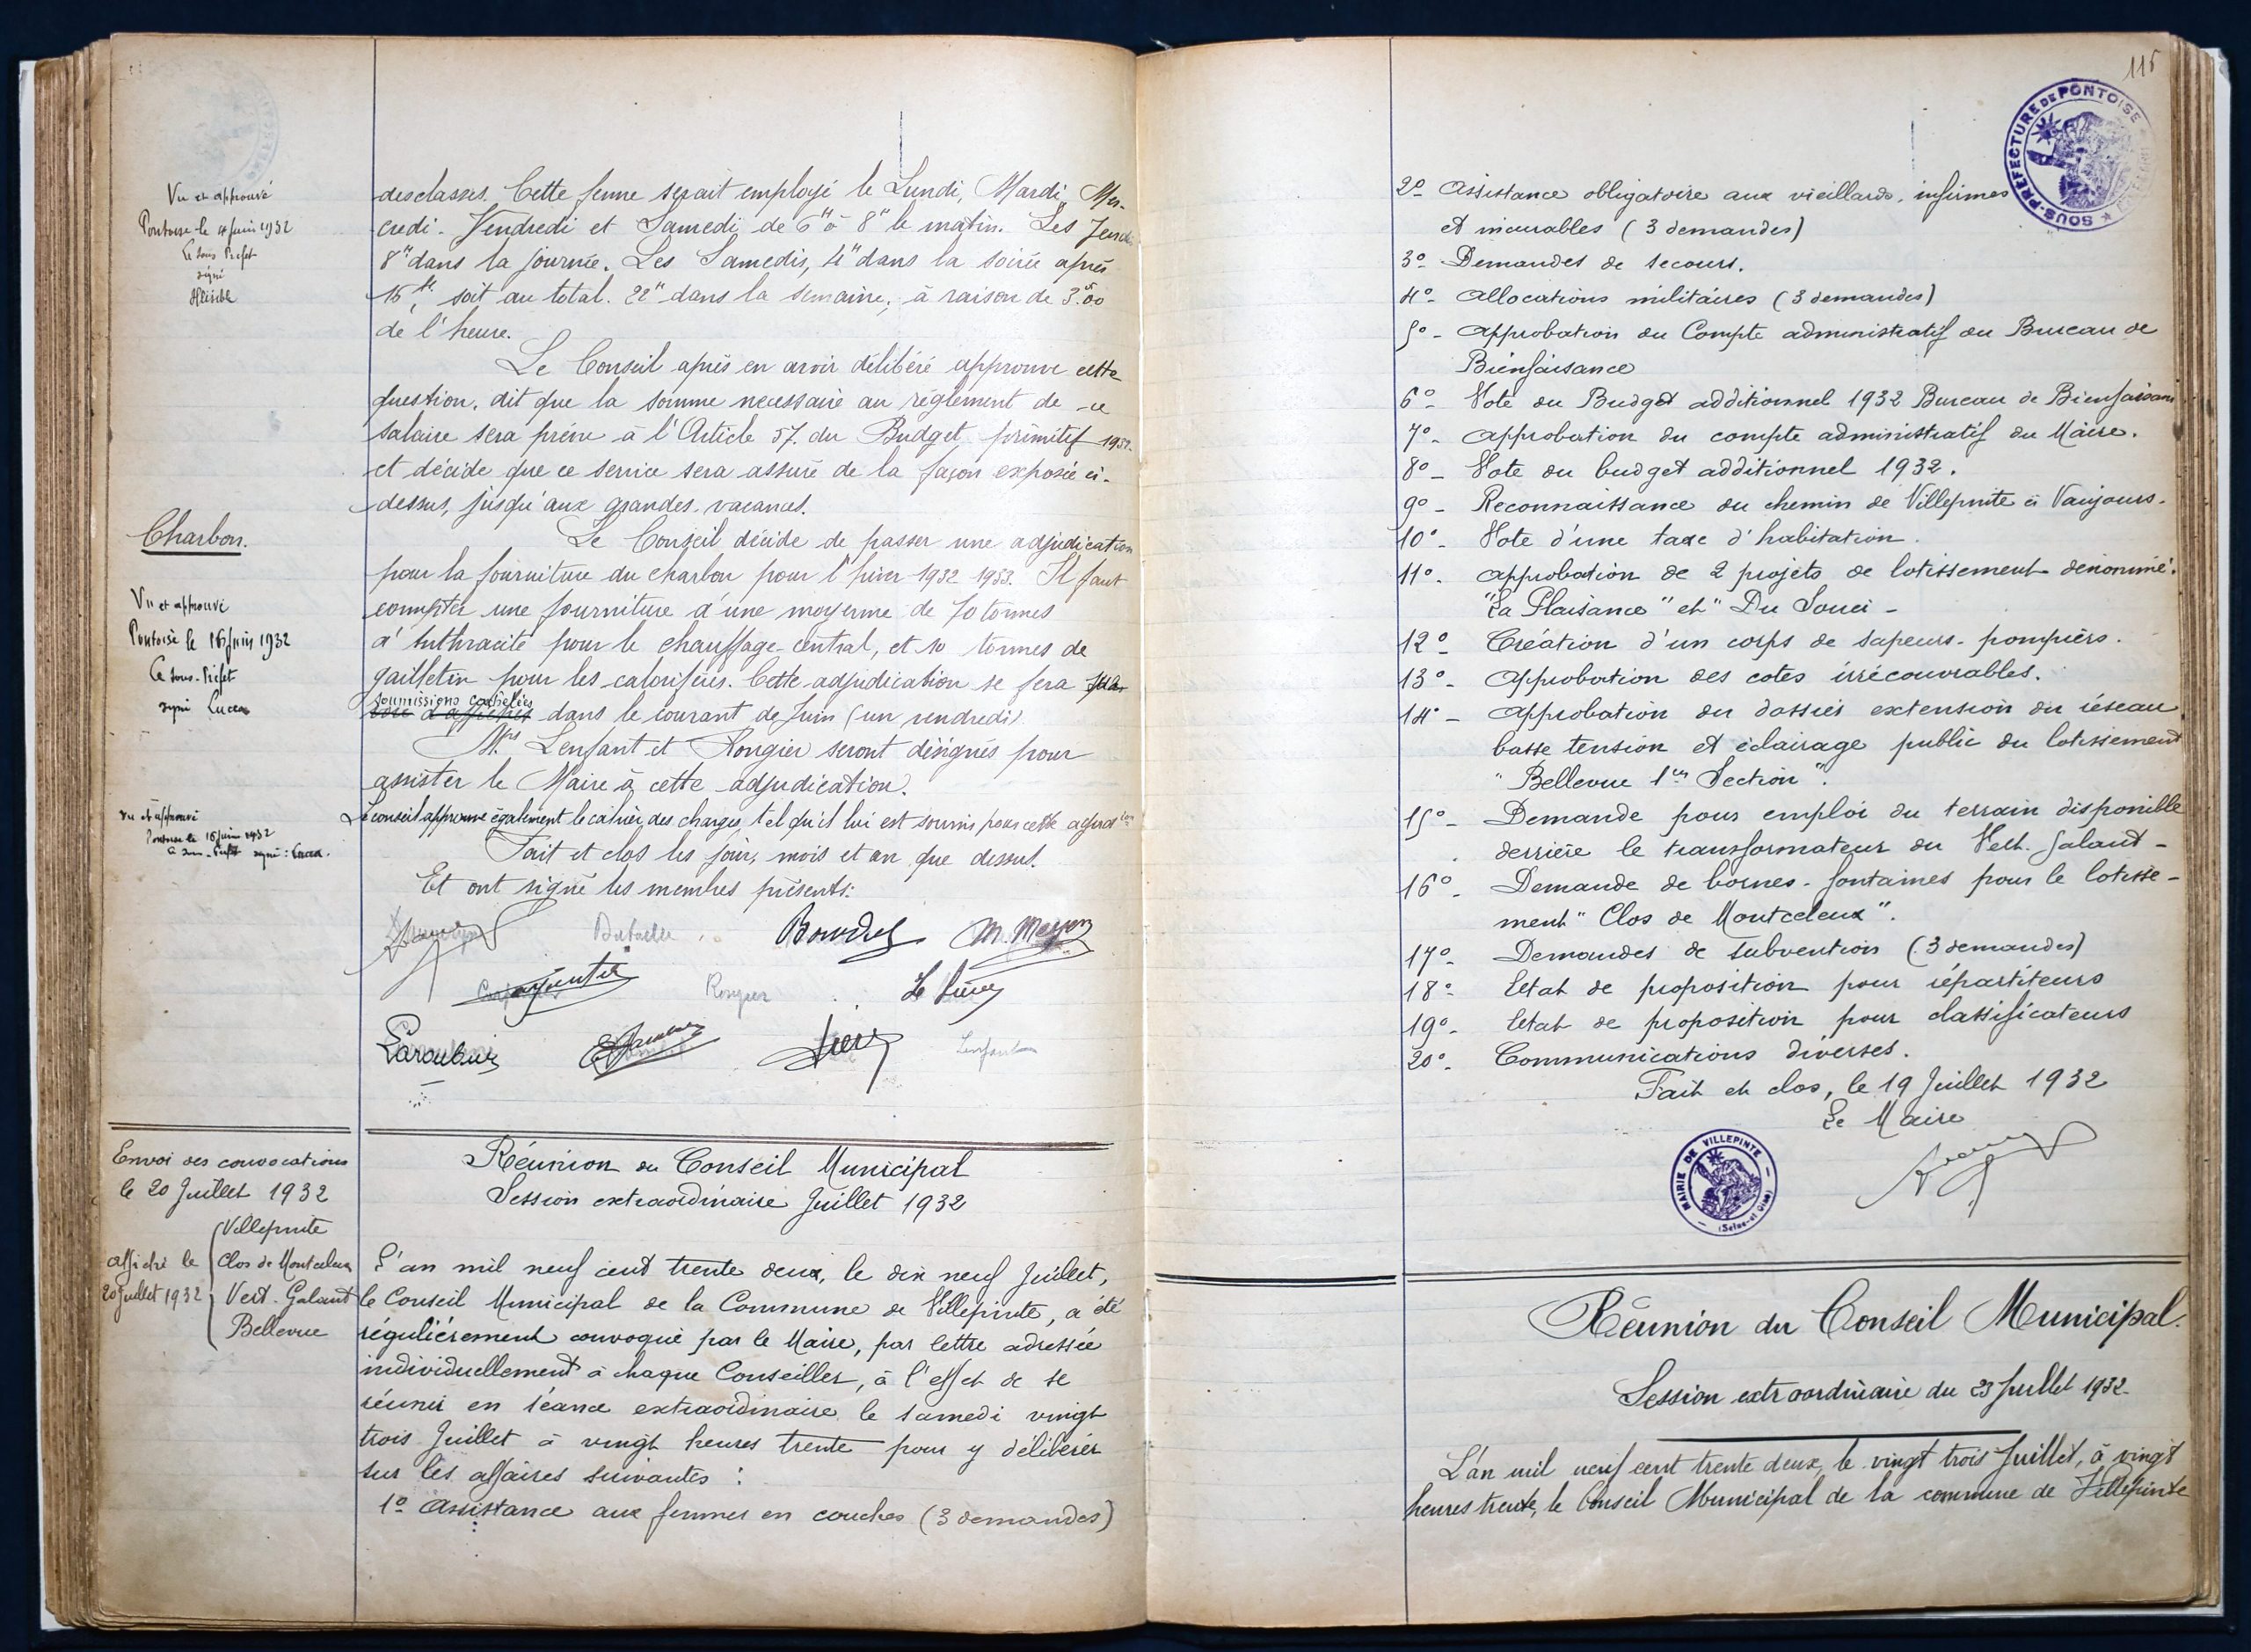 Vu et approuvé
Pontoise le 4 juin 1932
Le Sous Préfet
signé
desclasses. Cette femme serait employé le Lundi, Mardi, Mer-
credi - Vendredi et Samedi de 6H à 8H le matin. Les Jeudis
8H dans la journée. Les Samedis, 4H dans la soirée après
16H, soit au total. 22H dans la semaine, à raison de 3f00
de l'heure.
Le Conseil après en avoir délibéré approuve cette
question, dit que la somme necessaire au réglement de ce
salaire sera prévu à l'Article 57 du Budget primitif 1932.
et décide que ce service sera assuré de la façon exposée ci-
dessus, jusqu'aux grandes vacances.
Charbon.
Vu et approuvé
Pontoise le 16 juin 1932
Le Sous-Préfet
signé Lucea
Le Conseil décide de passer une adjudication
pour la fourniture du charbon pour l'hiver 1932 1933. Il faut
compter une fourniture d'une moyenne de 70 tonnes
d'Anthracite pour le chauffage central, et 10 tonnes de
gailletin pour les calorifères. Cette adjudication se fera par
soumissions cachetées
voie d'affiches dans le courant de Juin (un vendredi)
Mrs Lenfant et Rongier seront désignés pour
assister le Maire à cette adjudication.
vu et approuvé
Pontoise le 16 juin 1932
Le Sous-Préfet signé : Lucea.
Le conseil approuve également le cahier des charges tel qu'il lui est soumis pour cette adjudion
Fait et clos les jour, mois et an que dessus.
Et ont signé les membres présents:
Bataille Boudrel M. Meyer
Rongier Le Sueur
Laroubine Lenfant
Envoi des convocations
le 20 Juillet 1932
affiché le
20 Juillet 1932
Villepinte
Clos de Montceleux
Vert-Galant
Bellevue
Réunion du Conseil Municipal
Session extraordinaire Juillet 1932
L'an mil neuf cent trente deux, le dix neuf Juillet,
le Conseil Municipal de la Commune de Villepinte, a été
réguliérement convoqué par le Maire, par lettre adressée
individuellement à chaque Conseiller, à l'effet de se
réunir en séance extraordinaire le samedi vingt
trois Juillet à vingt heures trente pour y délibérer
sur les affaires suivantes :
1º Assistance aux femmes en couches (3 demandes)
115
SOUS-PRÉFECTURE DE PONTOISE
2º Assistance obligatoire aux vieillards, infirmes
et incurables (3 demandes)
3º- Demandes de secours.
4º- Allocations militaires (3 demandes)
5º- Approbation du Compte administratif du Bureau de
Bienfaisance
6º- Vote du Budget additionnel 1932 Bureau de Bienfaisance
7º- Approbation du compte administratif du Maire.
8º- Vote du budget additionnel 1932.
9º- Reconnaissance du chemin de Villepinte à Vaujours.
10º- Vote d'une taxe d'habitation.
11º- Approbation de 2 projets de lotissement dénommé:
"La Plaisance" et "Du Souci -
12º- Création d'un corps de sapeurs-pompiers.
13º- Approbation des cotes irrécouvrables.
14º- Approbation du dossier extension du réseau
basse tension et éclairage public du lotissement
"Bellevue 1ère Section".
15º- Demande pour emploi du terrain disponible
derrière le transformateur du Vert-Galant -
16º- Demande de bornes-fontaines pour le lotisse-
ment "Clos de Montceleux".
17º- Demandes de subvention (3 demandes)
18º- Etat de proposition pour répartiteurs
19º- Etat de proposition pour classificateurs
20º- Communications diverses.
Fait et clos, le 19 Juillet 1932
Le Maire
MAIRIE DE VILLEPINTE
(Seine-et-Oise)
Réunion du Conseil Municipal.
Session extraordinaire du 23 Juillet 1932-
L'an mil neuf cent trente deux, le vingt trois Juillet, à vingt
heures trente, le Conseil Municipal de la commune de Villepinte